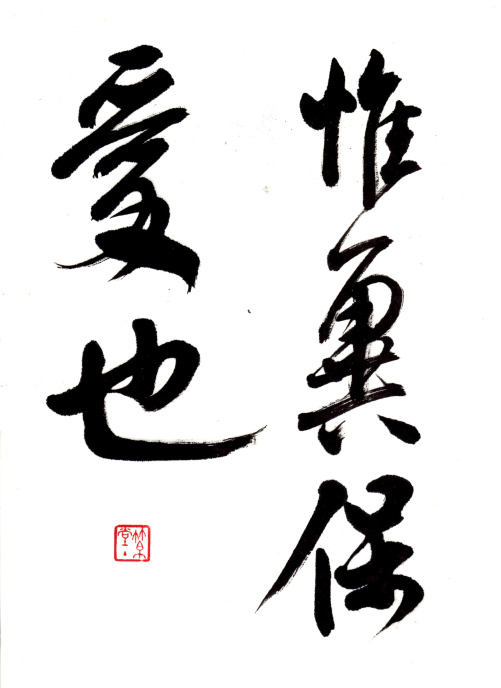 惟冀保
愛也